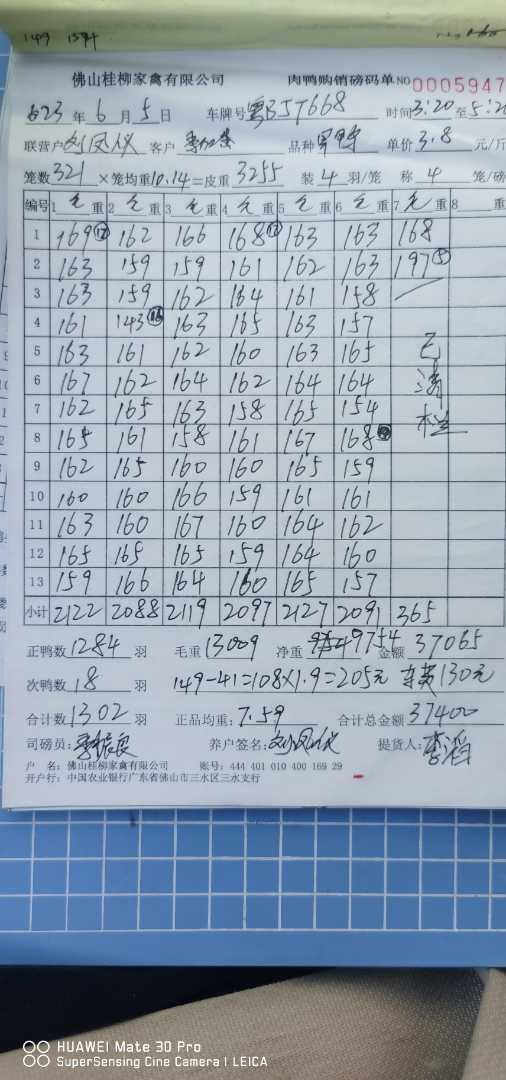 149 1594
佛山桂柳家禽有限公司 肉鸭购销磅码单 NO 0005947
2023 年 6 月 5 日 车牌号 粤B5T668 时间 3:20 至 5:20
联营户 刘凤仪 客户 品种 单价 3.8 元/斤
笼数 321 ×笼均重 10.14 =皮重 3255 装 4 羽/笼 称 4 笼/磅
编号 1 毛 重 2 毛 重 3 毛 重 4 毛 重 5 毛 重 6 毛 重 7 毛 重 8 重
1 169 ⑰ 162 166 168 163 163 168
2 163 159 159 161 162 163 197 ⑤
3 163 159 162 164 161 158
4 161 143 ⑯ 163 165 163 157
5 163 161 162 160 163 165 已
6 167 162 164 162 164 164 清
7 162 165 163 158 165 154 栏
8 165 161 158 161 167 168
9 162 165 160 160 165 159
10 160 160 166 159 161 161
11 163 160 167 160 164 162
12 165 165 165 159 164 160
13 159 166 164 160 165 157
小计 2122 2088 2119 2097 2127 2091 365
正鸭数 1284 羽 毛重 13009 净重 9754 金额 37065
次鸭数 18 羽 149-41=108×1.9=205元 车费130元
合计数 1302 羽 正品均重: 7.59 合计总金额 37400
司磅员: 养户签名: 刘凤仪 提货人: 李滔
户 名: 佛山桂柳家禽有限公司 账号: 444 401 010 400 169 29
开户行: 中国农业银行广东省佛山市三水区三水支行
HUAWEI Mate 30 Pro
SuperSensing Cine Camera | LEICA